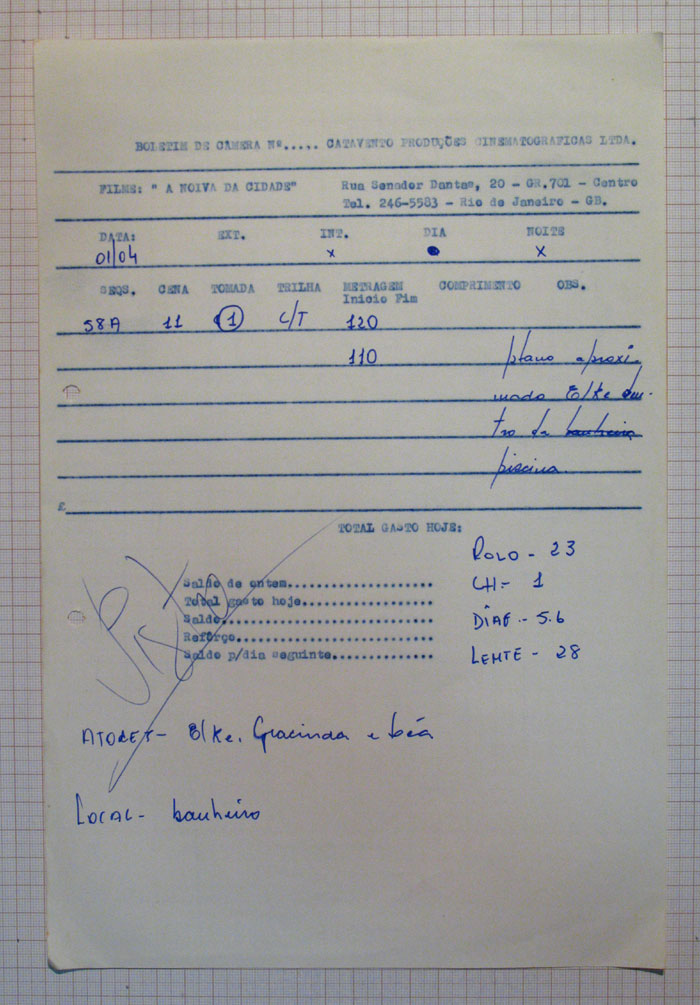 BOLETIM DE CÂMERA Nº..... CATAVENTO PRODUÇÕES CINEMATOGRAFICAS LTDA.
FILME: " A NOIVA DA CIDADE" Rua Senador Dantas, 20 - GR.701 - Centro
Tel. 246-5583 - Rio de Janeiro - GB.
DATA: EXT. INT. DIA NOITE
01/04 x x
SEQS. CENA TOMADA TRILHA METRAGEM COMPRIMENTO OBS.
Inicio Fim
58A 11 1 C/T 120
110 plano aproxi-
mado Elke den-
tro da banheira
piscina
£
TOTAL GASTO HOJE:
ROLO - 23
Saldo de ontem
CH - 1
Total gasto hoje
Saldo
DIAF - 5.6
Reforço
Saldo p/dia seguinte
LENTE - 28
ATORES - Elke, Gracinda e béa
LOCAL - banheiro